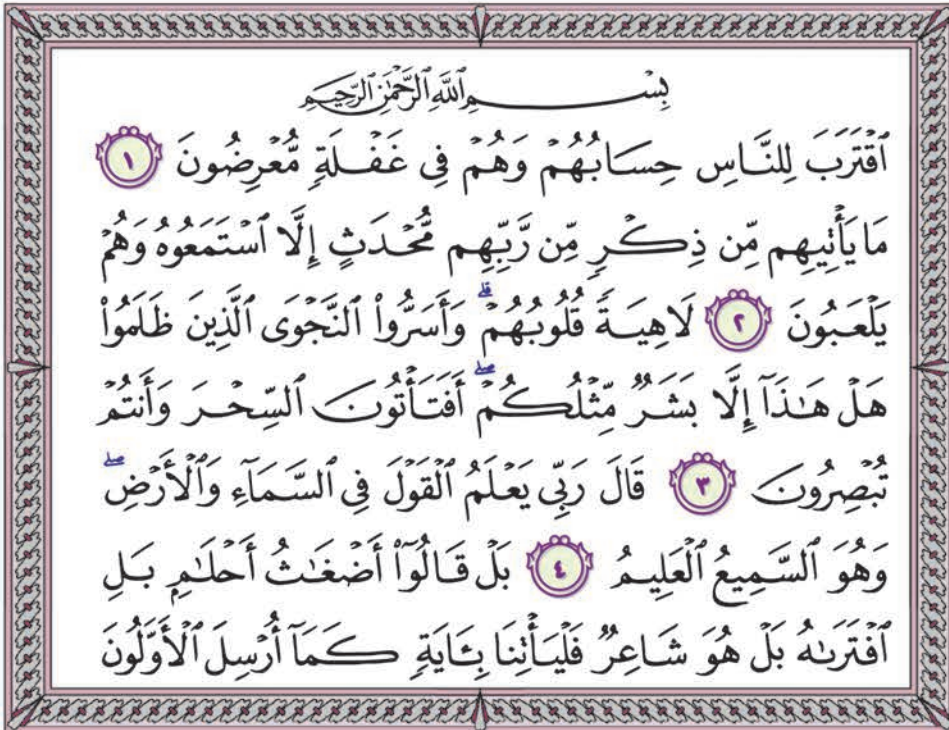 بِسْمِ ٱللَّهِ ٱلرَّحْمَٰنِ ٱلرَّحِيمِ
ٱقْتَرَبَ لِلنَّاسِ حِسَابُهُمْ وَهُمْ فِي غَفْلَةٍ مُّعْرِضُونَ ١
مَا يَأْتِيهِم مِّن ذِكْرٍ مِّن رَّبِّهِم مُّحْدَثٍ إِلَّا ٱسْتَمَعُوهُ وَهُمْ
يَلْعَبُونَ ٢ لَاهِيَةً قُلُوبُهُمْ ۗ وَأَسَرُّوا۟ ٱلنَّجْوَى ٱلَّذِينَ ظَلَمُوا۟
هَلْ هَٰذَآ إِلَّا بَشَرٌ مِّثْلُكُمْ ۖ أَفَتَأْتُونَ ٱلسِّحْرَ وَأَنتُمْ
تُبْصِرُونَ ٣ قَالَ رَبِّي يَعْلَمُ ٱلْقَوْلَ فِي ٱلسَّمَآءِ وَٱلْأَرْضِ ۖ
وَهُوَ ٱلسَّمِيعُ ٱلْعَلِيمُ ٤ بَلْ قَالُوٓا۟ أَضْغَٰثُ أَحْلَٰمٍۭ بَلِ
ٱفْتَرَىٰهُ بَلْ هُوَ شَاعِرٌ فَلْيَأْتِنَا بِـَٔايَةٍ كَمَآ أُرْسِلَ ٱلْأَوَّلُونَ